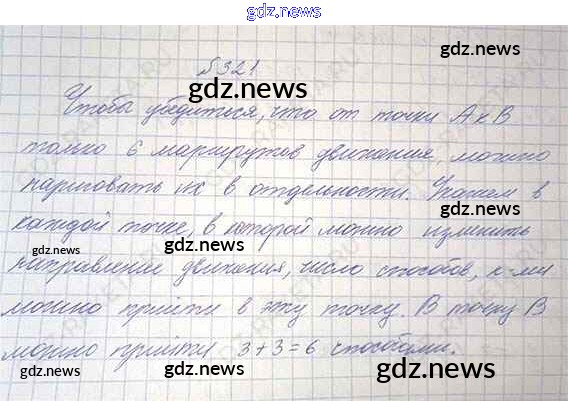 gdz.news
№321
gdz.news
gdz.news
Чтобы убедиться, что от точки А к В
только 6 маршрутов движения, можно
нарисовать их в отдельности. Укажем в
gdz.news
каждой точке, в которой можно изменить
gdz.news
gdz.news
направление движения, число способов, к-ми
можно прийти в эту точку. В точку В
можно прийти 3+3=6 способами.
gdz.news
gdz.news